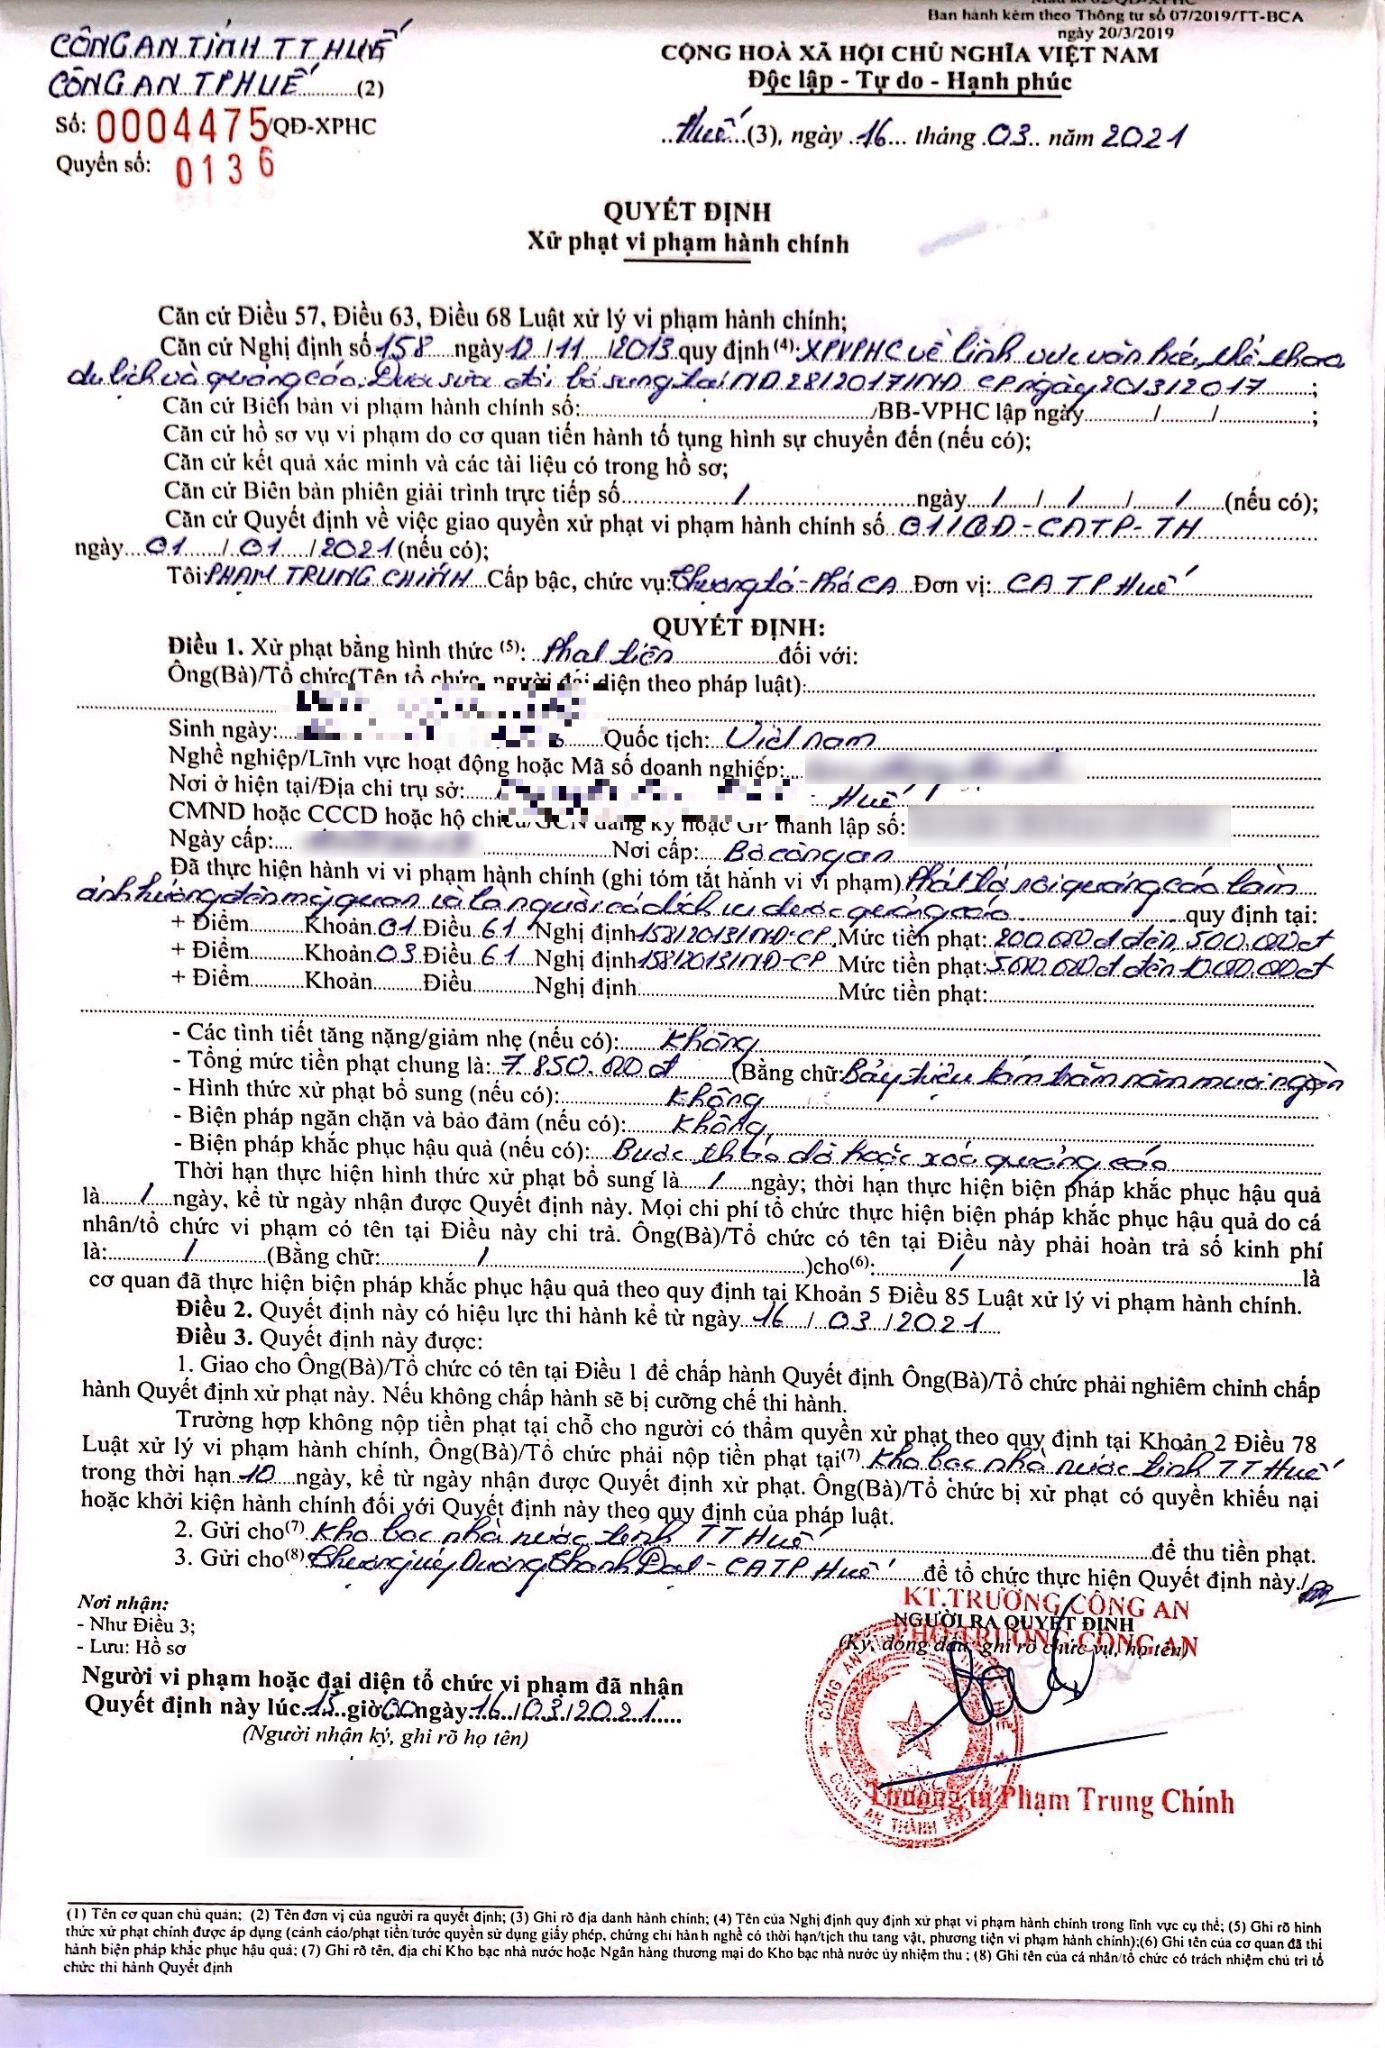 Ban hành kèm theo Thông tư số 07/2019/TT-BCA
ngày 20/3/2019
CÔNG AN TỈNH TT HUẾ
CÔNG AN TP HUẾ (2)
Số: 0004475/QĐ-XPHC
Quyển số: 0136
CỘNG HOÀ XÃ HỘI CHỦ NGHĨA VIỆT NAM
Độc lập - Tự do - Hạnh phúc
Huế (3), ngày 16 tháng 03 năm 2021
QUYẾT ĐỊNH
Xử phạt vi phạm hành chính
Căn cứ Điều 57, Điều 63, Điều 68 Luật xử lý vi phạm hành chính;
Căn cứ Nghị định số 158 ngày 12/11/2013 quy định (4): XPVPHC về lĩnh vực văn hóa, thể thao
du lịch và quảng cáo. Được sửa đổi bổ sung tại NĐ 28/2017/NĐ CP ngày 20/3/2017 ;
Căn cứ Biên bản vi phạm hành chính số: /BB-VPHC lập ngày / / ;
Căn cứ hồ sơ vụ vi phạm do cơ quan tiến hành tố tụng hình sự chuyển đến (nếu có);
Căn cứ kết quả xác minh và các tài liệu có trong hồ sơ;
Căn cứ Biên bản phiên giải trình trực tiếp số / ngày / / / / / (nếu có);
Căn cứ Quyết định về việc giao quyền xử phạt vi phạm hành chính số 01/QĐ-CATP-TH
ngày 01/01/2021 (nếu có);
Tôi PHẠM TRUNG CHÍNH Cấp bậc, chức vụ: Thượng tá - Phó CA Đơn vị: CA TP Huế
QUYẾT ĐỊNH:
Điều 1. Xử phạt bằng hình thức (5): Phạt tiền đối với:
Ông(Bà)/Tổ chức(Tên tổ chức, người đại diện theo pháp luật):
Sinh ngày: Quốc tịch: Việt nam
Nghề nghiệp/Lĩnh vực hoạt động hoặc Mã số doanh nghiệp:
Nơi ở hiện tại/Địa chỉ trụ sở: Huế
CMND hoặc CCCD hoặc hộ chiếu/GCN đăng ký hoặc GP thành lập số:
Ngày cấp: Nơi cấp: Bộ công an
Đã thực hiện hành vi vi phạm hành chính (ghi tóm tắt hành vi vi phạm) Phát tờ rơi quảng cáo làm
ảnh hưởng đến mỹ quan và là người có dịch vụ được quảng cáo quy định tại:
+ Điểm Khoản 01 Điều 61 Nghị định 158/2013/NĐ-CP Mức tiền phạt: 200.000đ đến 500.000đ
+ Điểm Khoản 03 Điều 61 Nghị định 158/2013/NĐ-CP Mức tiền phạt: 5.000.000đ đến 10.000.000đ
+ Điểm Khoản Điều Nghị định Mức tiền phạt:
- Các tình tiết tăng nặng/giảm nhẹ (nếu có): Không
- Tổng mức tiền phạt chung là: 7.850.000đ (Bằng chữ: Bảy triệu tám trăm năm mươi ngàn
- Hình thức xử phạt bổ sung (nếu có): Không
- Biện pháp ngăn chặn và bảo đảm (nếu có): Không
- Biện pháp khắc phục hậu quả (nếu có): Buộc tháo dỡ hoặc xóa quảng cáo
Thời hạn thực hiện hình thức xử phạt bổ sung là / ngày; thời hạn thực hiện biện pháp khắc phục hậu quả
là / ngày, kể từ ngày nhận được Quyết định này. Mọi chi phí tổ chức thực hiện biện pháp khắc phục hậu quả do cá
nhân/tổ chức vi phạm có tên tại Điều này chi trả. Ông(Bà)/Tổ chức có tên tại Điều này phải hoàn trả số kinh phí
là: / (Bằng chữ: / )cho(6): / là
cơ quan đã thực hiện biện pháp khắc phục hậu quả theo quy định tại Khoản 5 Điều 85 Luật xử lý vi phạm hành chính.
Điều 2. Quyết định này có hiệu lực thi hành kể từ ngày 16/03/2021
Điều 3. Quyết định này được:
1. Giao cho Ông(Bà)/Tổ chức có tên tại Điều 1 để chấp hành Quyết định Ông(Bà)/Tổ chức phải nghiêm chỉnh chấp
hành Quyết định xử phạt này. Nếu không chấp hành sẽ bị cưỡng chế thi hành.
Trường hợp không nộp tiền phạt tại chỗ cho người có thẩm quyền xử phạt theo quy định tại Khoản 2 Điều 78
Luật xử lý vi phạm hành chính, Ông(Bà)/Tổ chức phải nộp tiền phạt tại(7) Kho bạc nhà nước tỉnh TT Huế
trong thời hạn 10 ngày, kể từ ngày nhận được Quyết định xử phạt. Ông(Bà)/Tổ chức bị xử phạt có quyền khiếu nại
hoặc khởi kiện hành chính đối với Quyết định này theo quy định của pháp luật.
2. Gửi cho(7) Kho bạc nhà nước tỉnh TT Huế để thu tiền phạt.
3. Gửi cho(8) Thượng úy Dương Thanh Đạt - CATP Huế để tổ chức thực hiện Quyết định này./
Nơi nhận:
- Như Điều 3;
- Lưu: Hồ sơ
Người vi phạm hoặc đại diện tổ chức vi phạm đã nhận
Quyết định này lúc 15 giờ 00 ngày 16/03/2021
(Người nhận ký, ghi rõ họ tên)
KT.TRƯỞNG CÔNG AN
NGƯỜI RA QUYẾT ĐỊNH
PHÓ TRƯỞNG CÔNG AN
(Ký, đóng dấu, ghi rõ chức vụ, họ tên)
CÔNG AN THÀNH PHỐ
Thượng tá Phạm Trung Chính
(1) Tên cơ quan chủ quản; (2) Tên đơn vị của người ra quyết định; (3) Ghi rõ địa danh hành chính; (4) Tên của Nghị định quy định xử phạt vi phạm hành chính trong lĩnh vực cụ thể; (5) Ghi rõ hình
thức xử phạt chính được áp dụng (cảnh cáo/phạt tiền/tước quyền sử dụng giấy phép, chứng chỉ hành nghề có thời hạn/tịch thu tang vật, phương tiện vi phạm hành chính);(6) Ghi tên của cơ quan đã thi
hành biện pháp khắc phục hậu quả; (7) Ghi rõ tên, địa chỉ Kho bạc nhà nước hoặc Ngân hàng thương mại do Kho bạc nhà nước ủy nhiệm thu ; (8) Ghi tên của cá nhân/tổ chức có trách nhiệm chủ trì tổ
chức thi hành Quyết định